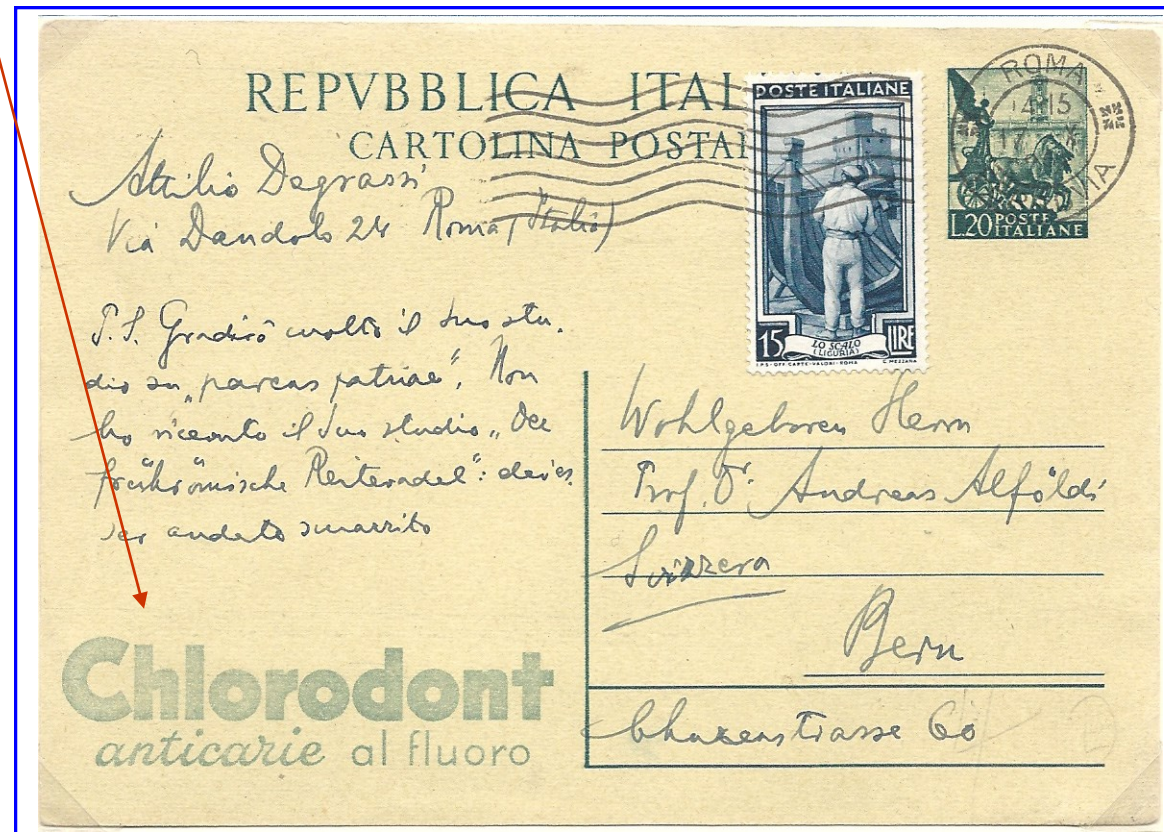 REPVBBLICA ITAL
CARTOLINA POSTAL
POSTE ITALIANE
15 LIRE
LO SCALO
(LIGURIA)
I.P.S.-OFF. CARTE-VALORI-ROMA C. MEZZANA
ROMA
17
VIA
L.20 POSTE ITALIANE
Attilio Degrassi
Via Dandolo 24 Roma (Italia)
P.S. Gradirò molto il Suo stu-
dio su „parcas patriae“. Non
ho ricevuto il Suo studio „Der
frührömische Reiteradel“: dev'es-
ser andato smarrito
Wohlgeboren Herrn
Prof. Dr. Andreas Alföldi
Svizzera
Bern
60
Chlorodont
anticarie al fluoro